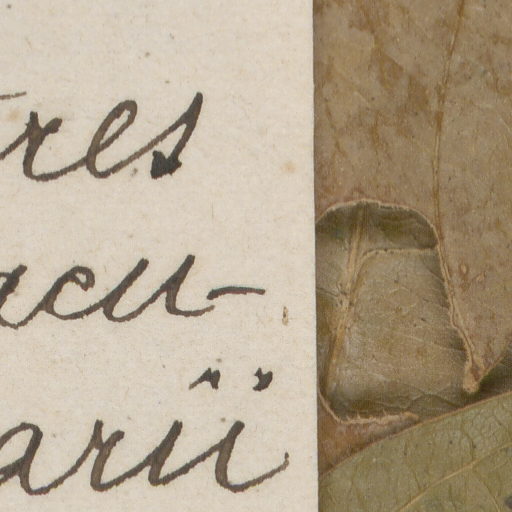 tres
acu-
arii